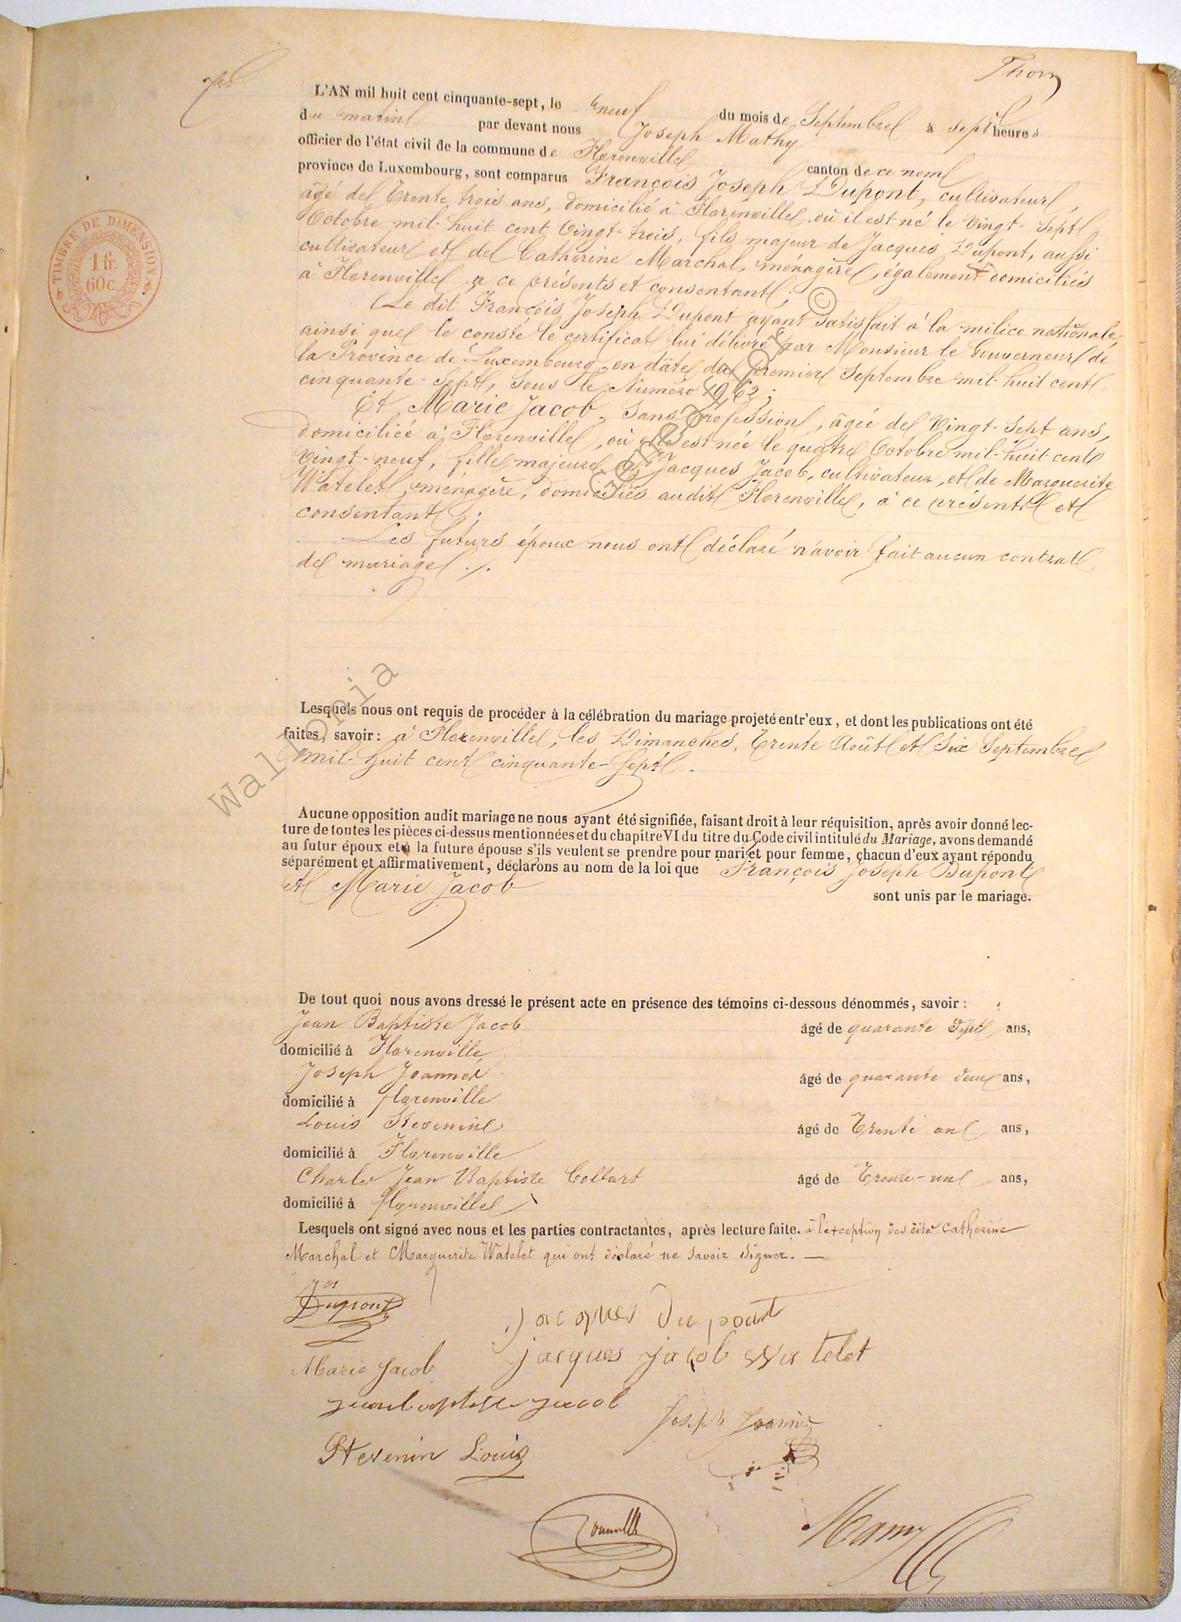 Thom
L'AN mil huit cent cinquante-sept, le neuf du mois de Septembre à sept heures
du matin par devant nous Joseph Mathy
officier de l'état civil de la commune de Florenville canton de ce nom
province de Luxembourg, sont comparus François Joseph Dupont, cultivateur,
âgé de Trente trois ans, domicilié à Florenville, où il est né le Vingt-Sept
Octobre mil-huit cent Vingt-trois, fils majeur de Jacques Dupont, aussi
cultivateur et de Catherine Marchal, ménagère, également domiciliés
à Florenville, a ce présents et consentant;
Le dit François Joseph Dupont ayant satisfait à la milice nationale
ainsi que le conste le certificat lui délivré par Monsieur le Gouverneur de
la Province de Luxembourg en date du premier Septembre mil-huit cent
cinquante-Sept, sous le Numéro 1962;
Et Marie Jacob, Sans profession, âgée de Vingt-Sept ans,
domiciliée à Florenville, où elle est née le quatre Octobre mil-huit cent
Vingt-neuf, fille majeure de Jacques Jacob, cultivateur, et de Marguerite
Watelet, ménagère, domiciliés audit Florenville, à ce présents et
consentant;
Les futurs époux nous ont déclaré n'avoir fait aucun contrat
de mariage ./.
TIMBRE DE DIMENSION
1 fr.
60 c.
Lesquels nous ont requis de procéder à la célébration du mariage projeté entr'eux, et dont les publications ont été
faites, savoir: à Florenville, les Dimanches, Trente Août et Six Septembre
mil-huit cent cinquante-Sept.
Aucune opposition audit mariage ne nous ayant été signifiée, faisant droit à leur réquisition, après avoir donné lec-
ture de toutes les pièces ci-dessus mentionnées et du chapitre VI du titre du Code civil intitulé du Mariage, avons demandé
au futur époux et à la future épouse s'ils veulent se prendre pour mari et pour femme, chacun d'eux ayant répondu
séparément et affirmativement, déclarons au nom de la loi que François Joseph Dupont
et Marie Jacob sont unis par le mariage.
De tout quoi nous avons dressé le présent acte en présence des témoins ci-dessous dénommés, savoir:
Jean Baptiste Jacob âgé de quarante Sept ans,
domicilié à Florenville
Joseph Joannès âgé de quarante deux ans,
domicilié à florenville
Louis Stevenin âgé de Trente un ans,
domicilié à Florenville
Charles Jean Baptiste Collart âgé de Trente-un ans,
domicilié à florenville
Lesquels ont signé avec nous et les parties contractantes, après lecture faite. à l'exception des dites Catherine
Marchal et Marguerite Watelet qui ont déclaré ne savoir signer. —
Jos Dupont
jacques Du pont
Marie Jacob
jacques jacob watelet
jean baptiste jacob
Joseph Joannès
Stevenin Louis
GeneaNet for ©
Wallonia